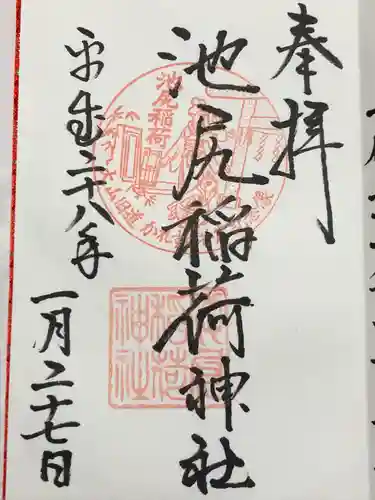 奉拝
池尻稲荷神社
平成二十八年
一月二十七日
池尻稲荷
大山旧道
稲荷
神社